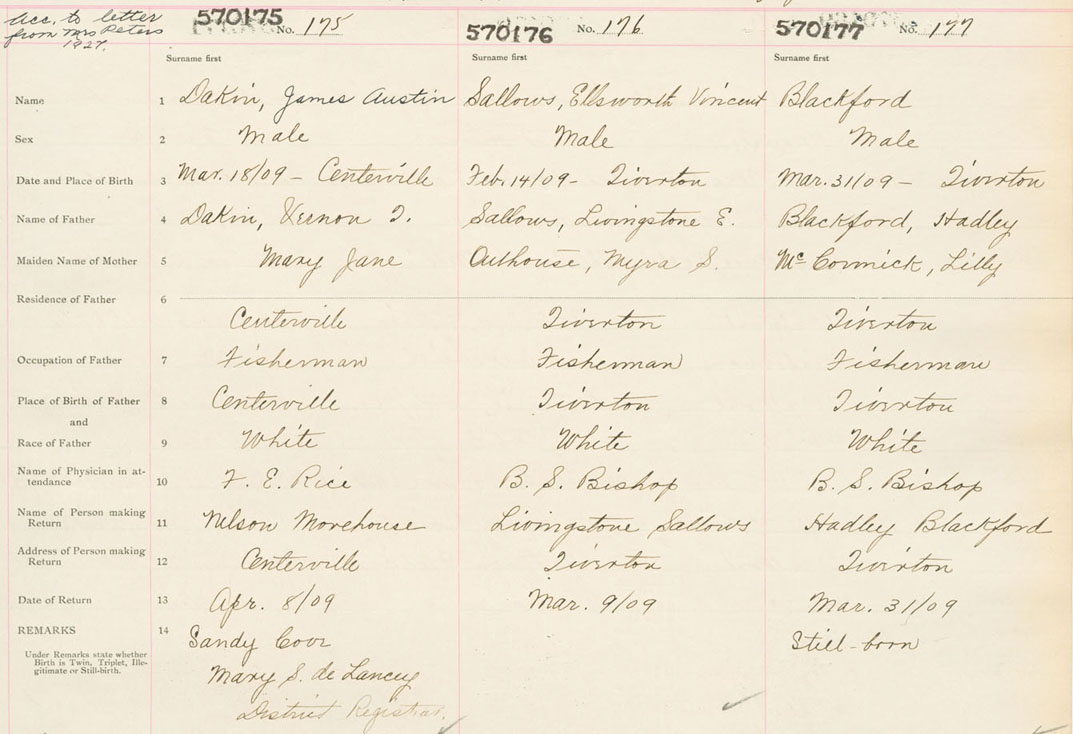 acc. to letter
from Mrs Peters
1927.
570175 No. 175 570176 No. 176 570177 No. 177
Surname first Surname first Surname first
Name 1 Dakin, James Austin Sallows, Ellsworth Vincent Blackford
Sex 2 Male Male Male
Date and Place of Birth 3 Mar. 18/09 - Centerville Feb. 14/09 - Tiverton Mar. 31/09 - Tiverton
Name of Father 4 Dakin, Vernon T. Sallows, Livingstone E. Blackford, Hadley
Maiden Name of Mother 5 Mary Jane Outhouse, Myra S. McCormick, Lilly
Residence of Father 6
Centerville Tiverton Tiverton
Occupation of Father 7 Fisherman Fisherman Fisherman
Place of Birth of Father 8 Centerville Tiverton Tiverton
and
Race of Father 9 White White White
Name of Physician in at-
tendance 10 F. E. Rice B. S. Bishop B. S. Bishop
Name of Person making
Return 11 Nelson Morehouse Livingstone Sallows Hadley Blackford
Address of Person making
Return 12 Centerville Tiverton Tiverton
Date of Return 13 Apr. 8/09 Mar. 9/09 Mar. 31/09
REMARKS 14 Sandy Cove Still-born
Under Remarks state whether
Birth is Twin, Triplet, Ille-
gitimate or Still-birth.
Mary S. de Lancey
District Registrar.